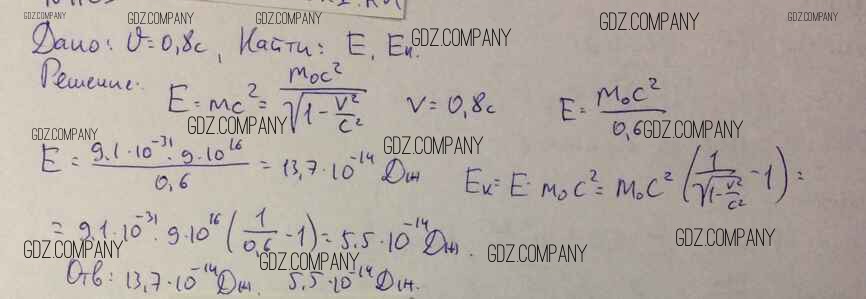 GDZ.COMPANY GDZ.COMPANY GDZ.COMPANY
Дано: V=0,8c, Найти: E, Eк. GDZ.COMPANY GDZ.COMPANY
Решение. E = mc² = m₀c² / √(1 - V²/c²) V = 0,8c E = m₀c² / 0,6
GDZ.COMPANY GDZ.COMPANY GDZ.COMPANY
E = 9.1·10⁻³¹·9·10¹⁶ / 0,6 = 13,7·10⁻¹⁴ Дж GDZ.COMPANY Eк = E - m₀c² = m₀c² (1 / √(1 - V²/c²) - 1) =
= 9.1·10⁻³¹·9·10¹⁶ (1/0,6 - 1) = 5.5·10⁻¹⁴ Дж. GDZ.COMPANY
GDZ.COMPANY GDZ.COMPANY GDZ.COMPANY
Отв: 13,7·10⁻¹⁴ Дж. 5,5·10⁻¹⁴ Дж.